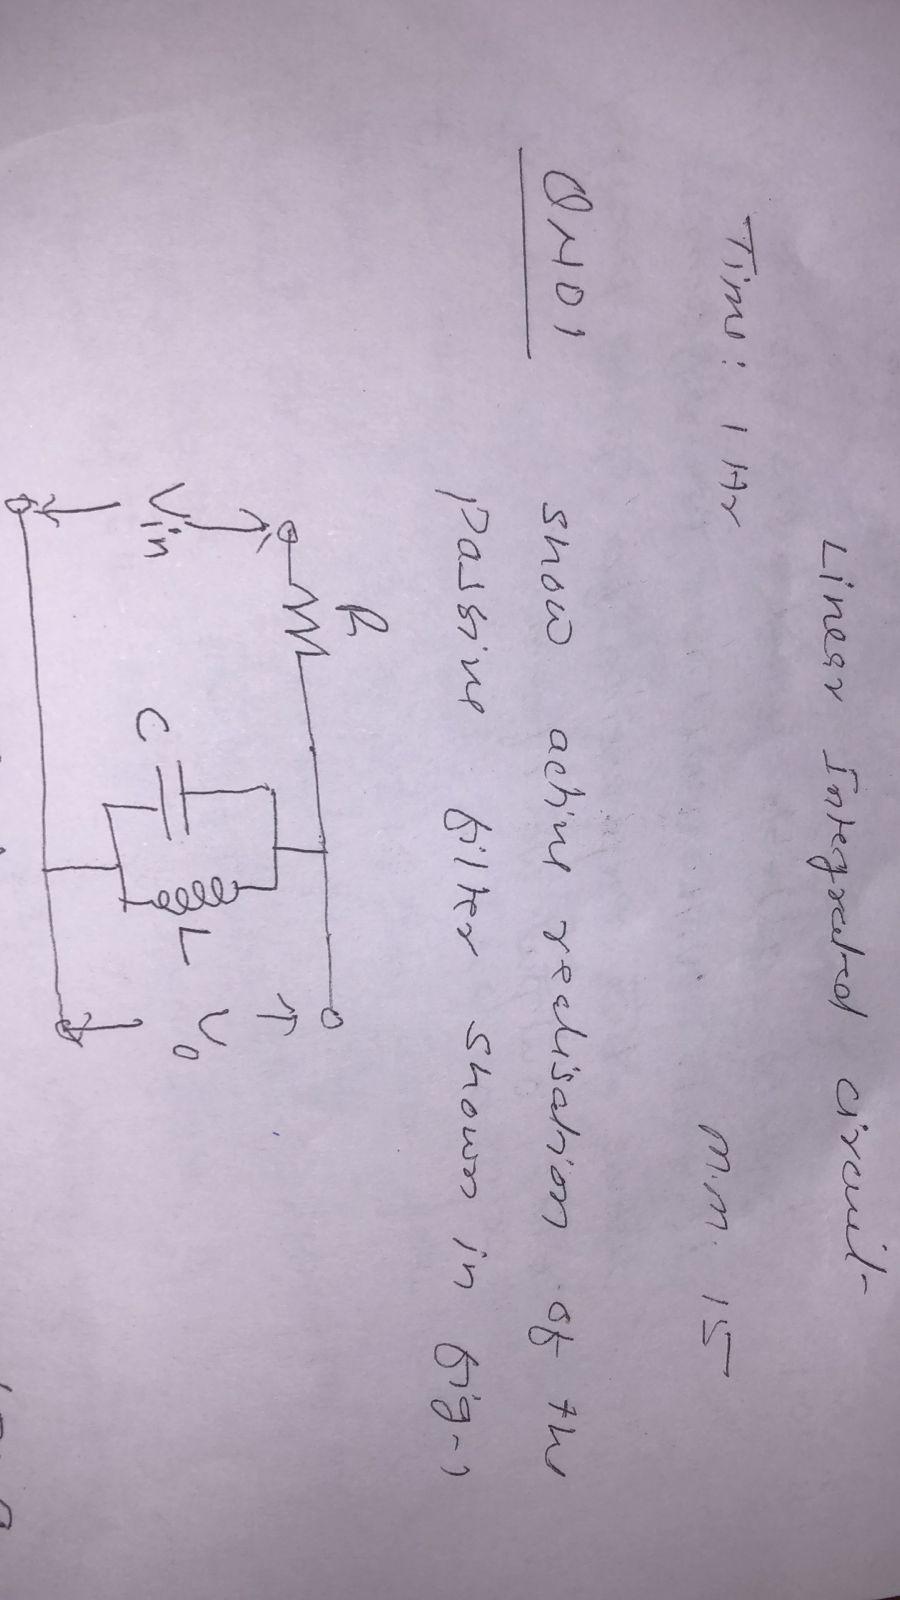 Linear Integrated Circuit
Time: 1 Hr M.M. 15
QNO1 Show active realisation of the
passive filter shown in fig-1
R
Vin
C
L
Vo